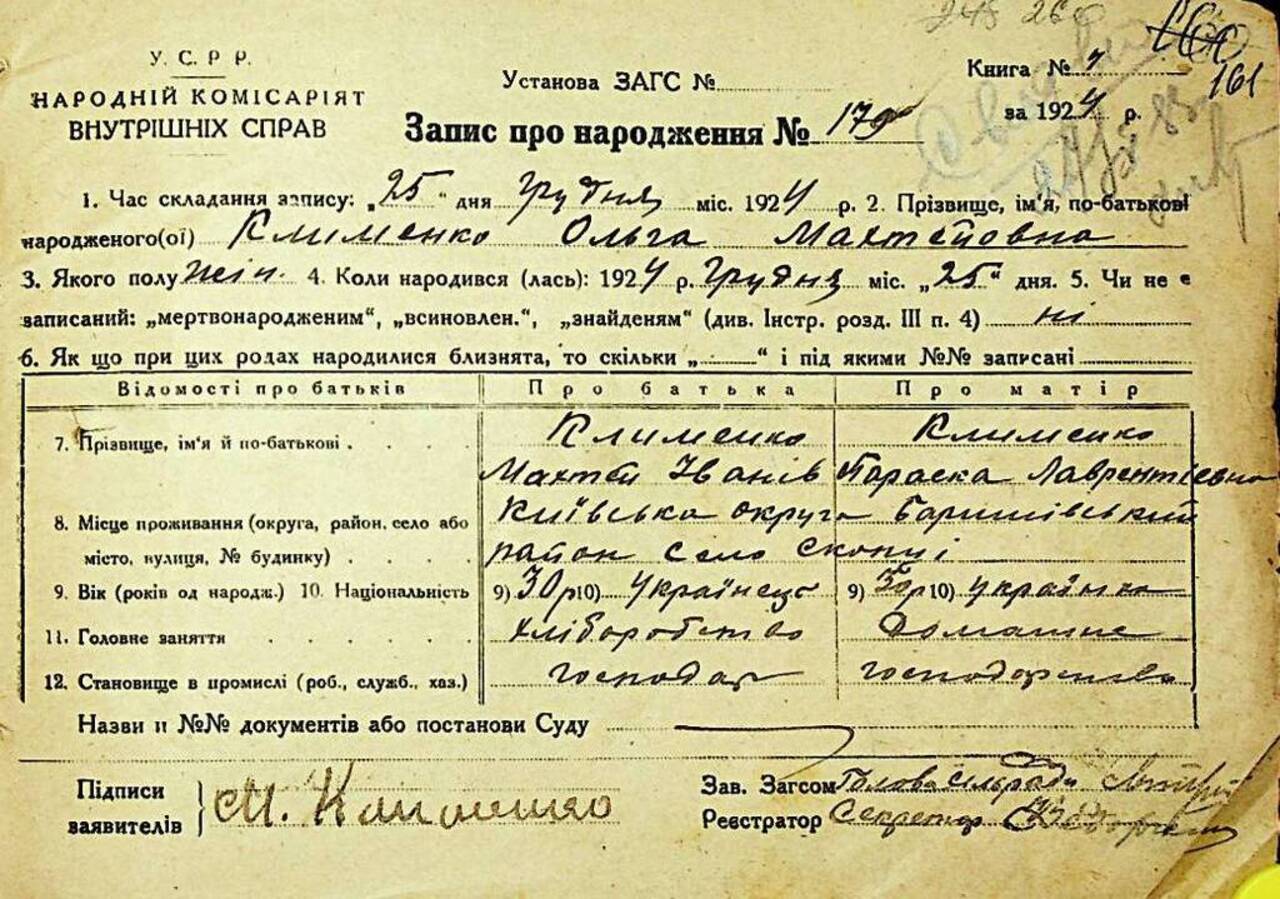 248 260
160
161
У. С. Р Р.
НАРОДНІЙ КОМІСАРІЯТ
ВНУТРІШНІХ СПРАВ
Установа ЗАГС №
Книга № 1
за 1924 р.
Запис про народження № 179
1. Час складання запису: „25" дня Грудня міс. 1924 р. 2. Прізвище, ім'я, по-батькові
народженого(ої) Клименко Ольга Махтейовна
3. Якого полу жін. 4. Коли народився (лась): 1924 р. Грудня міс. „25" дня. 5. Чи не є
записаний: „мертвонародженим", „всиновлен.", „знайденям" (див. Інстр. розд. III п. 4) ні
6. Як що при цих родах народилися близнята, то скільки „ " і під якими №№ записані
Відомості про батьків Про батька Про матір
7. Прізвище, ім'я й по-батькові Клименко Клименко
Махтей Іванів Параска Лаврентієвна
8. Місце проживання (округа, район, село або Київська округа Баришівський
місто, вулиця, № будинку) район село Скопці
9. Вік (років од народж.) 10. Національність 9) 30 р 10) Українець 9) 30 р 10) українка
11. Головне заняття хліборобство Домашнє
12. Становище в промислі (роб., служб., хаз.) господар господарство
Назви и №№ документів або постанови Суду
Підписи
заявителів
М. Клименко
Зав. Загсом Голова сільради
Реєстратор Секретар